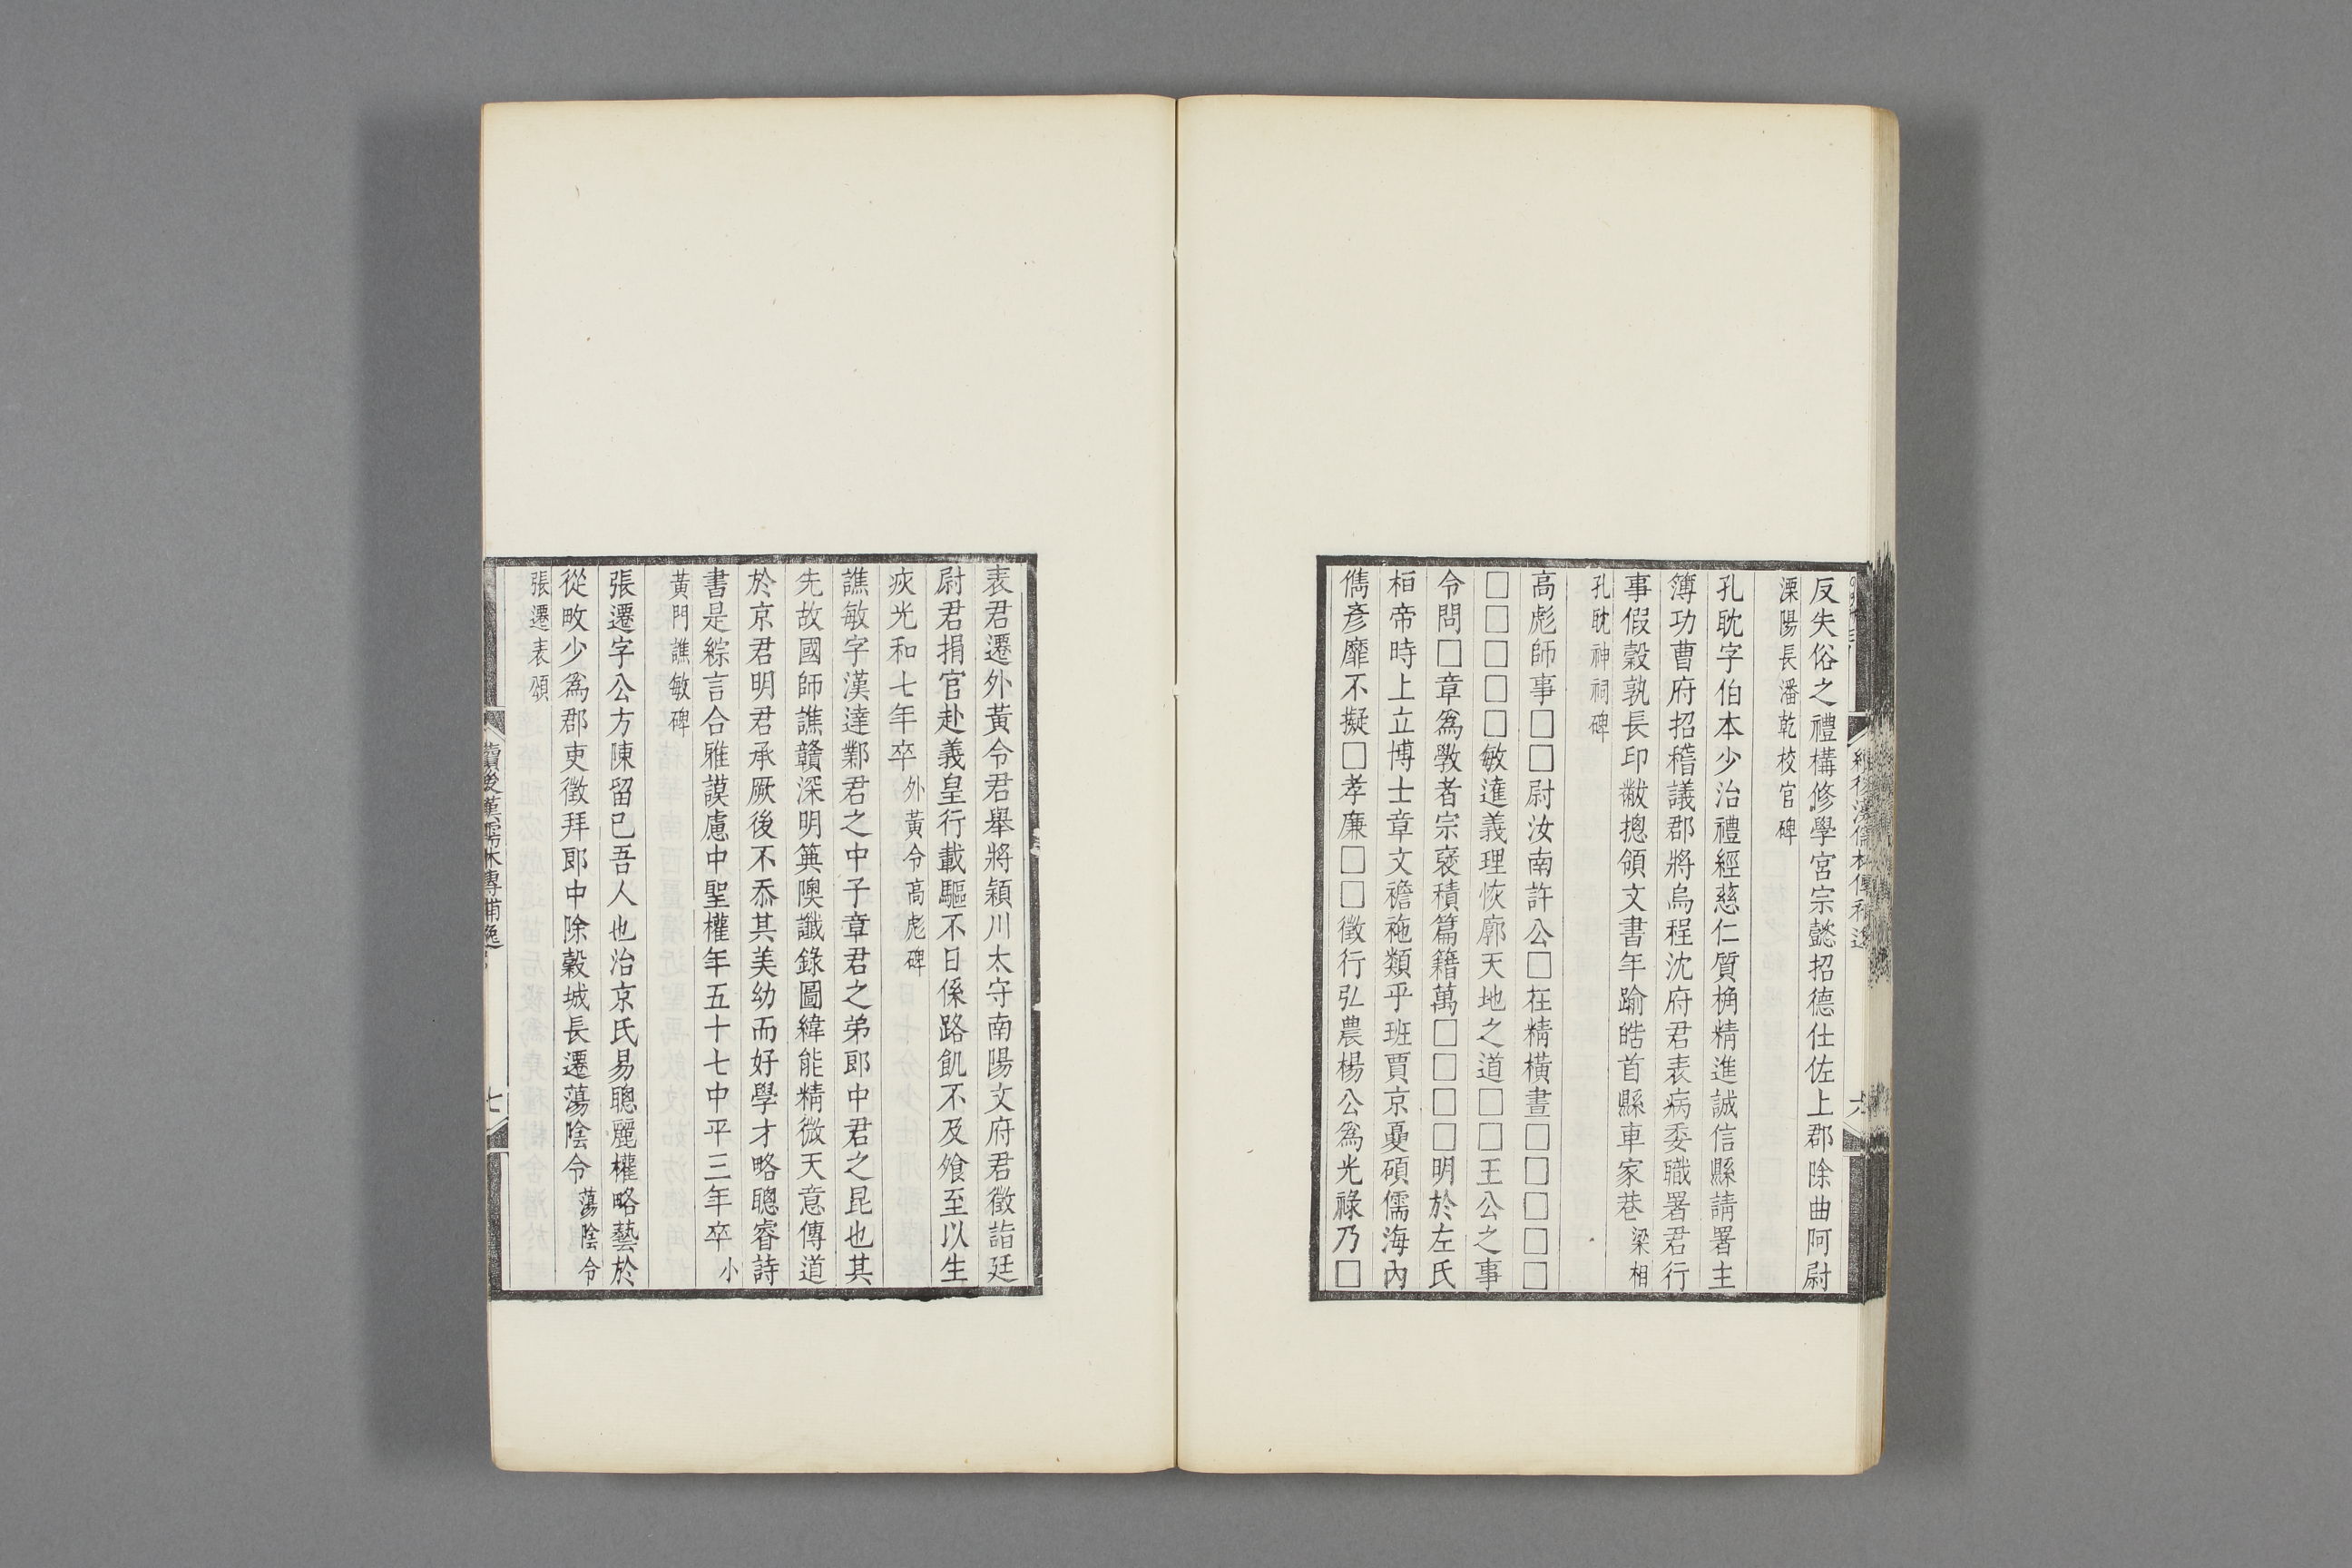 反失俗之禮構修學宮宗懿招德仕佐上郡除曲阿尉
溧陽長潘乾校官碑
孔耽字伯本少治禮經慈仁質桷精進誠信縣請署主
簿功曹府招稽議郡將烏程沈府君表病委職署君行
事假穀孰長印黻摠領文書年踰皓首縣車家巷 梁相
孔耽神祠碑
高彪師事□□尉汝南許公□在精橫晝□□□□□
□□□□□敏達義理恢廓天地之道□□王公之事
令問□章爲斆者宗裦積篇籍萬□□□□明於左氏
桓帝時上立博士章文襜袘類乎班賈京憂碩儒海內
儁彥靡不擬□孝廉□□徵行弘農楊公爲光祿乃□
表君遷外黃令君舉將潁川太守南陽文府君徵詣廷
尉君捐官赴義皇行載驅不日係路飢不及飧至以生
疢光和七年卒 外黃令高彪碑
譙敏字漢達鄴君之中子章君之弟郎中君之昆也其
先故國師譙贛深明箕隩讖錄圖緯能精微天意傳道
於京君明君承厥後不忝其美幼而好學才略聰睿詩
書是綜言合雅謨慮中聖權年五十七中平三年卒 小
黃門譙敏碑
張遷字公方陳留已吾人也治京氏易聰麗權略藝於
從畋少爲郡吏徵拜郎中除穀城長遷蕩陰令 蕩陰令
張遷表頌
續後漢儒林傳補逸
七